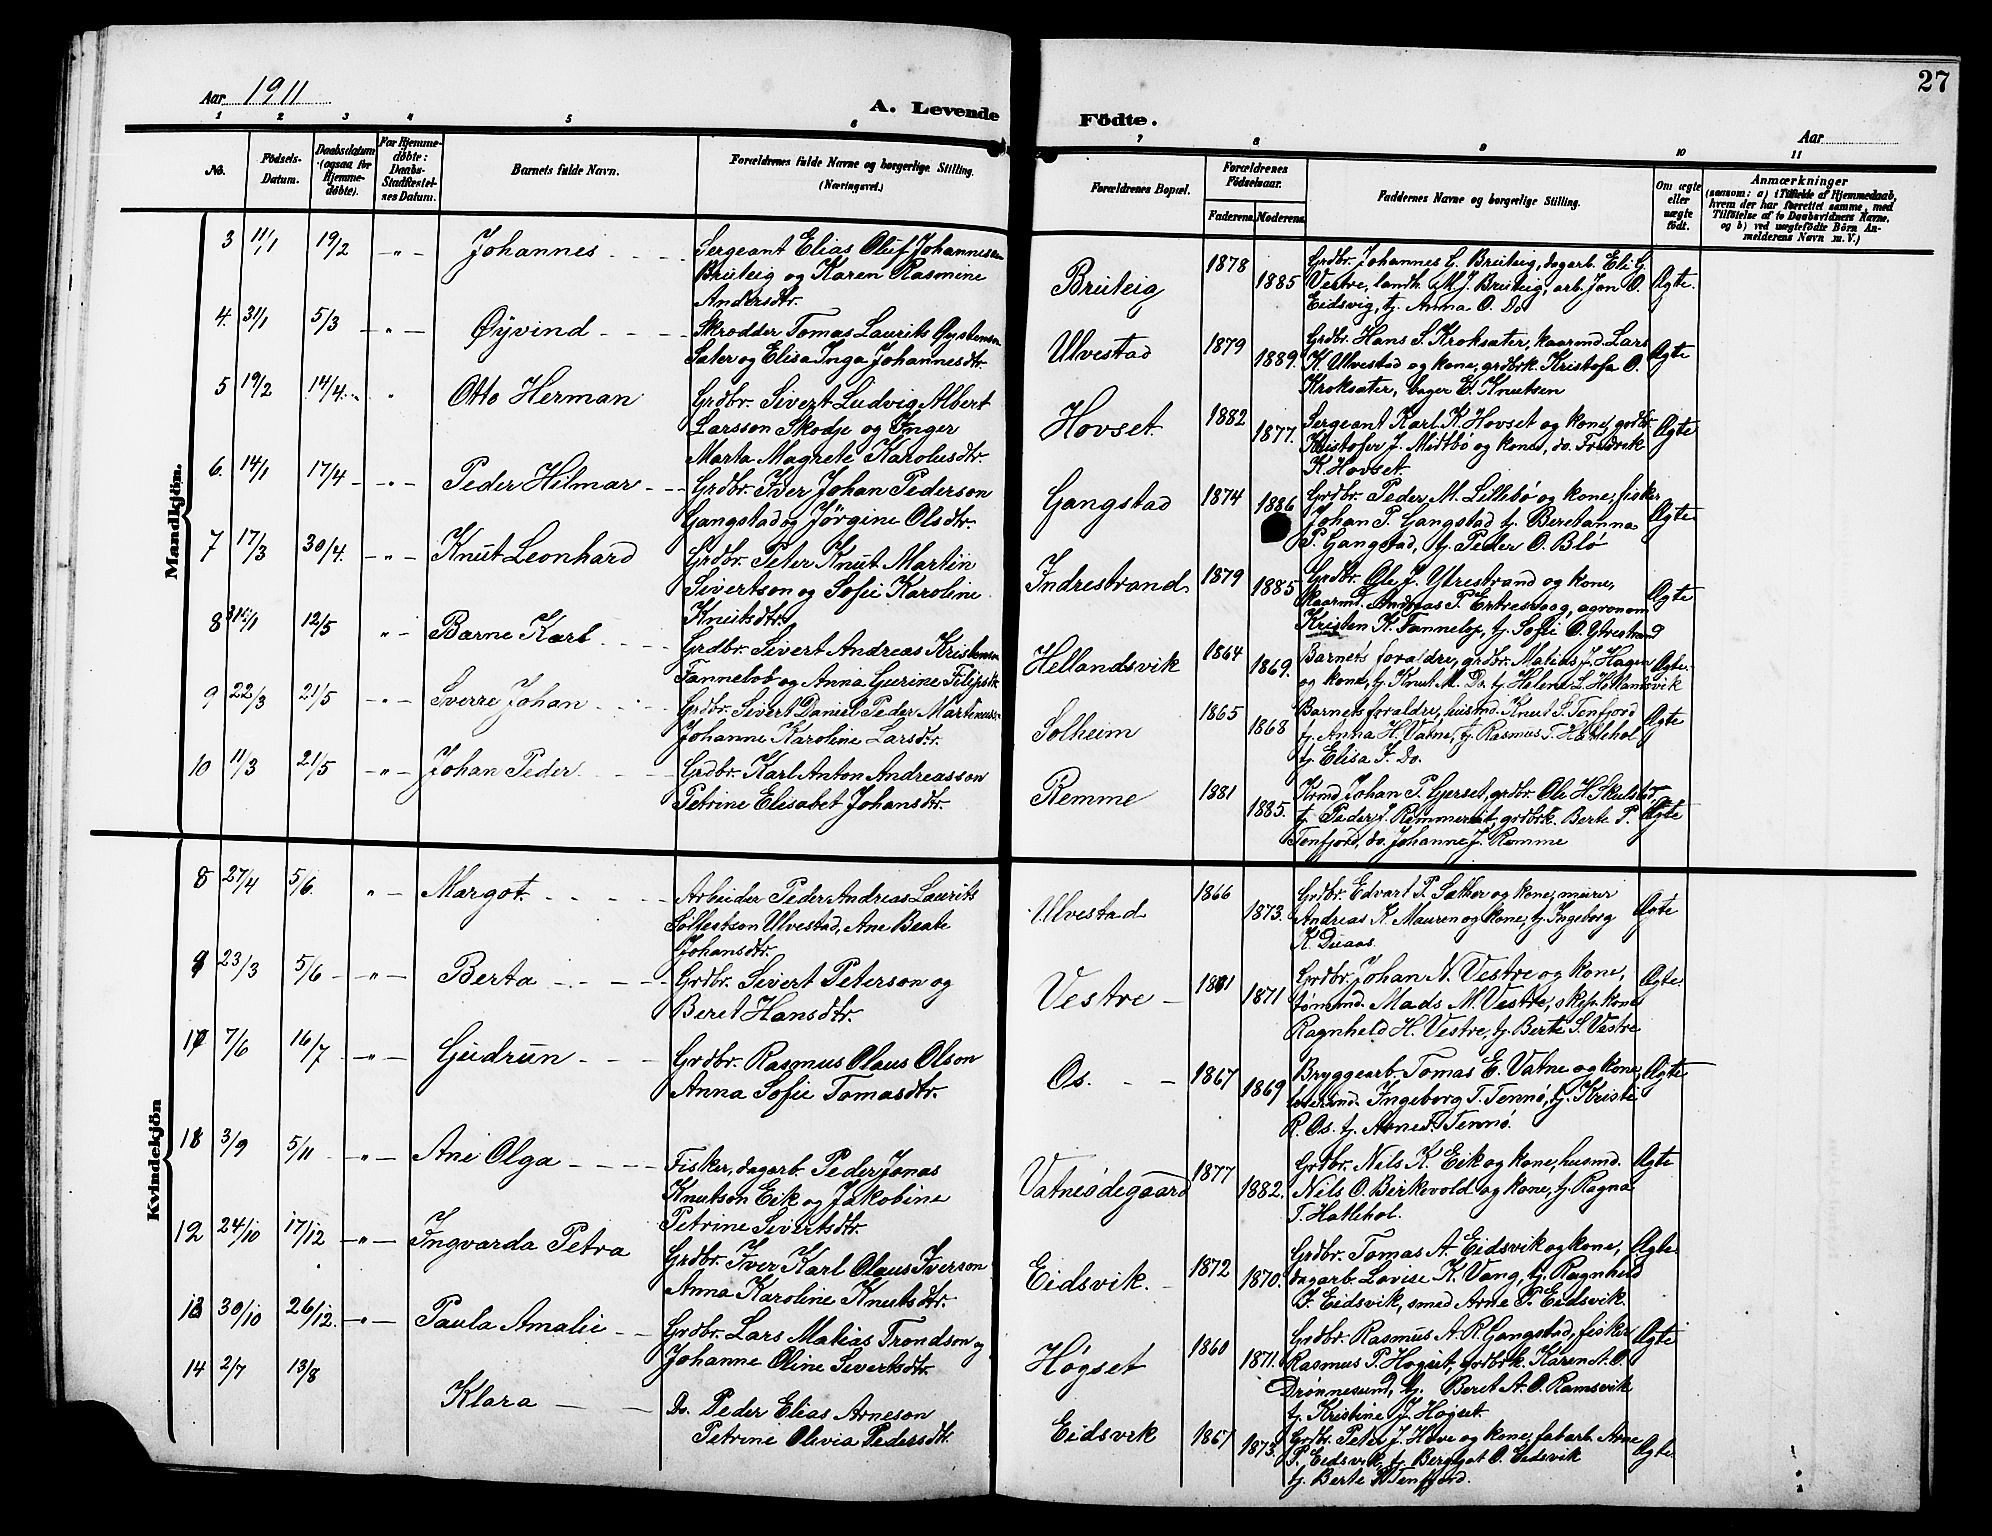 27
Aar 1911
A. Levende Fødte.
Aar
1 2 3 4 5 6 7 8 9 10 11
No.
Fødsels-Datum.
Daabsdatum (ogsaa for Hjemme-døbte).
For Hjemme-døbte: Daabs-Stadfæstel-ses Datum.
Barnets fulde Navn.
Forældrenes fulde Navne og borgerlige Stilling. (Næringsvei.)
Forældrenes Bopæl.
Forældrenes Fødselsaar.
Faderens. Moderens.
Faddernes Navne og borgerlige Stilling.
Om ægte eller uægte født.
Anmærkninger
(saasom: a) i Tilfælde af Hjemmedaab, hvem der har forrettet samme, med Tilføielse af to Daabsvidners Navne, og b) ved uægtefødte Børn Anmelderens Navn m. V.)
Mandkjön.
3 11/1 19/2 - " - Johannes
Sergeant Elias Oluf Johannesen
Brüteig og Karen Rasmine
Andersdtr.
Brüteig 1878 1885
Grdbr. Johannes G. Brüteig, dagarb. Eli G.
Vestre, landh. M. J. Brüteig, arb. Jon O.
Eidsvig, tj. Anna O. Do
Ægte.
4. 31/1 5/3 - " - Øyvind
Skrædder Tomas Laurits Oystensen
Sæter og Elisa Inga Johannesdtr.
Ulvestad 1879 1889.
Grdbr. Hans S. Kroksæter, kaarmd. Lars
K. Ulvestad og kone, grdbrk. Kristofa O.
Kroksæter, bager E. Knutsen
Ægte
5 19/2 14/4. " Otto Herman
Grdbr. Sivert Ludvig Albert
Larsson Skodje og Inger
Marta Magrete Karolusdtr.
Hovset. 1882 1877.
Sergeant Karl K. Hovset og kone, grdbr.
Kristofer J. Midtbø og kone, do. Fredrik
K. Hovset.
Ægte
6. 14/1 17/4 - " - Peder Hilmar
Grdbr. Iver Johan Pederson
Gangstad og Jørgine Olsdtr.
Gangstad 1874 1886
Grdbr. Peder M. Lillebø og kone, fisker
Johan P. Gangstad tj. Beretanna
P. Gangstad, tj. Peder O. Blø
Ægte
7 17/3 30/4. - " - Knut Leonhard
Grdbr. Peter Knut Martin
Sivertson og Sofie Karoline
Knutsdtr.
Indrestrand. 1879 1885
Grdbr. Ole J. Ytrestrand og kone,
kaarmd. Andreas P. Ertresvaag, agronom
Kristen K. Tannelop, tj. Sofie O. Ytrestrand
Ægte
8 31/1 12/5 " - Barne Karl
Grdbr. Sivert Andreas Kristensen
Tannelob og Anna Gurine Filipsdtr.
Hellandsvik 1864 1869.
Barnets forældre, grdbr. Matias J. Hagen
og kone, tj. Knut M. Do. tj. Helene L. Hellandsvik
Ægte.
9 22/3 21/5 - " - Sverre Johan
Grdbr. Sivert Daniel Peder Martinuss.
Johanne Karoline Larsdtr.
Solheim 1865 1868
Barnets forældre, husmd. Knut S. Tenfjord
tj. Anna H. Vatne, tj. Rasmus T. Hatlehol
tj. Elisa F. Do.
Ægte
10 11/3 21/5 - " - Johan Peder
Grdbr. Karl Anton Andreasson
Petrine Elisabet Johansdtr.
Remme 1881 1885.
Krmd. Johan P. Gjerset, grdbr. Ole H. Skulstad
tj. Peder J. Remmereit, grdbrk. Berte P.
Tenfjord, do. Johanne J. Remme
Ægte
Kvindekjön
8 27/4 5/6. " - Margot.
Arbeider Peder Andreas Laurits
Sollestson Ulvestad, Ane Beate
Johansdtr.
Ulvestad 1866 1873.
Grdbr. Edvart P. Sætker og kone, murer
Andreas K. Mauren og kone, tj. Ingeborg
K. Duaas.
Ægte
9 23/3 5/6 - " - Berta
Grdbr. Sivert Peterson og
Beret Hansdtr.
Vestre - 1871
Grdbr. Johan N. Vestre og kone,
tømmd. Mads M. Vestre, skipp. kone
Ragnheld H. Vestre, tj. Berte S. Vestre
Ægte.
7/6 16/7 - " - Gudrun
Grdbr. Rasmus Olaus Olson
Anna Sofie Tomasdtr.
Os. 1867 1869
Bryggearb. Tomas E. Vatne og kone,
Ingeborg T. Tennø, tj. Kristi
R. Os. tj. Arne T. Tennø.
Ægte
11 3/9 5/11 - " - Ane Olga
Fisker, dagarb. Peder Jonas
Knutson Eik og Jakobine
Petrine Sivertsdtr.
Vatneødegaard 1877 1882.
Grdbr. Nils K. Eik og kone, husmd.
Nils O. Birkevold og kone, tj. Ragna
T. Hatlehol.
Ægte
12 24/10 17/12 - " - Ingvarda Petra
Grdbr. Iver Karl Olaus Iverson
Anna Karoline Knutsdtr.
Eidsvik. 1872 1870.
Grdbr. Tomas A. Eidsvik og kone,
dagarb. Lovise K. Vang, tj. Ragnheld
J. Eidsvik, smed Arne P. Eidsvik.
Ægte.
13 30/10 26/12. - " - Paula Amalie
Grdbr. Lars Matias Trondson og
Johanne Oline Sivertsdtr.
Høgset 1860 1871.
Grdbr. Rasmus A. R. Gangstad, fisker
Rasmus P. Hogset, grdbrk. Karen A. O.
Drønnesund, tj. Beret A. O. Ramsvik
tj. Kristine J. Hogset.
Ægte
14 2/7 13/8 Klara
Do. Peder Elias Arneson
Petrine Olivia Pedersdtr.
Eidsvik 1867 1873.
Grdbr. Peter J. Hove og kone, fabarb. Arne
P. Eidsvik, tj. Bergljot O. Eidsvik
tj. Berte P. Tenfjord.
Ægte.